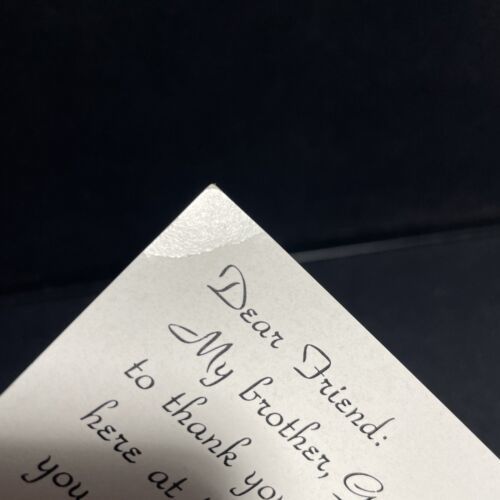 Dear Friend:
My brother,
to thank
here at
you